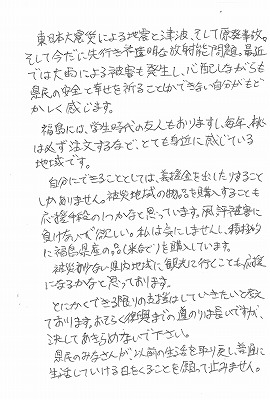 東日本大震災による地震と津波、そして原発事故。
そして今だに先行き不透明な放射能問題、最近
では大雨による被害も発生し、心配しながらも
県民の安全と幸せを祈ることしかできない自分がもど
かしく感じます。
福島には、学生時代の友人もおりますし、毎年、桃
は必ず注文するなど、とても身近に感じている
地域です。
自分にできることとしては、義援金を出したりすること
しかありません。被災地域の物品を購入することも
応援手段の1つかなと思っています。風評被害に
負けないで欲しい。私は気にしませんし、積極的
に福島県産の品(米など)を購入しています。
被災が少ない県内地域に、観光に行くことも応援
になるかなと思っております。
とにかくできる限りの支援はしていきたいと考え
ております。おそらく復興までの道のりは長いですが、
決してあきらめないで下さい。
県民のみなさんが、以前の生活を取り戻し、普通に
生活していける日をくることを願って止みません。